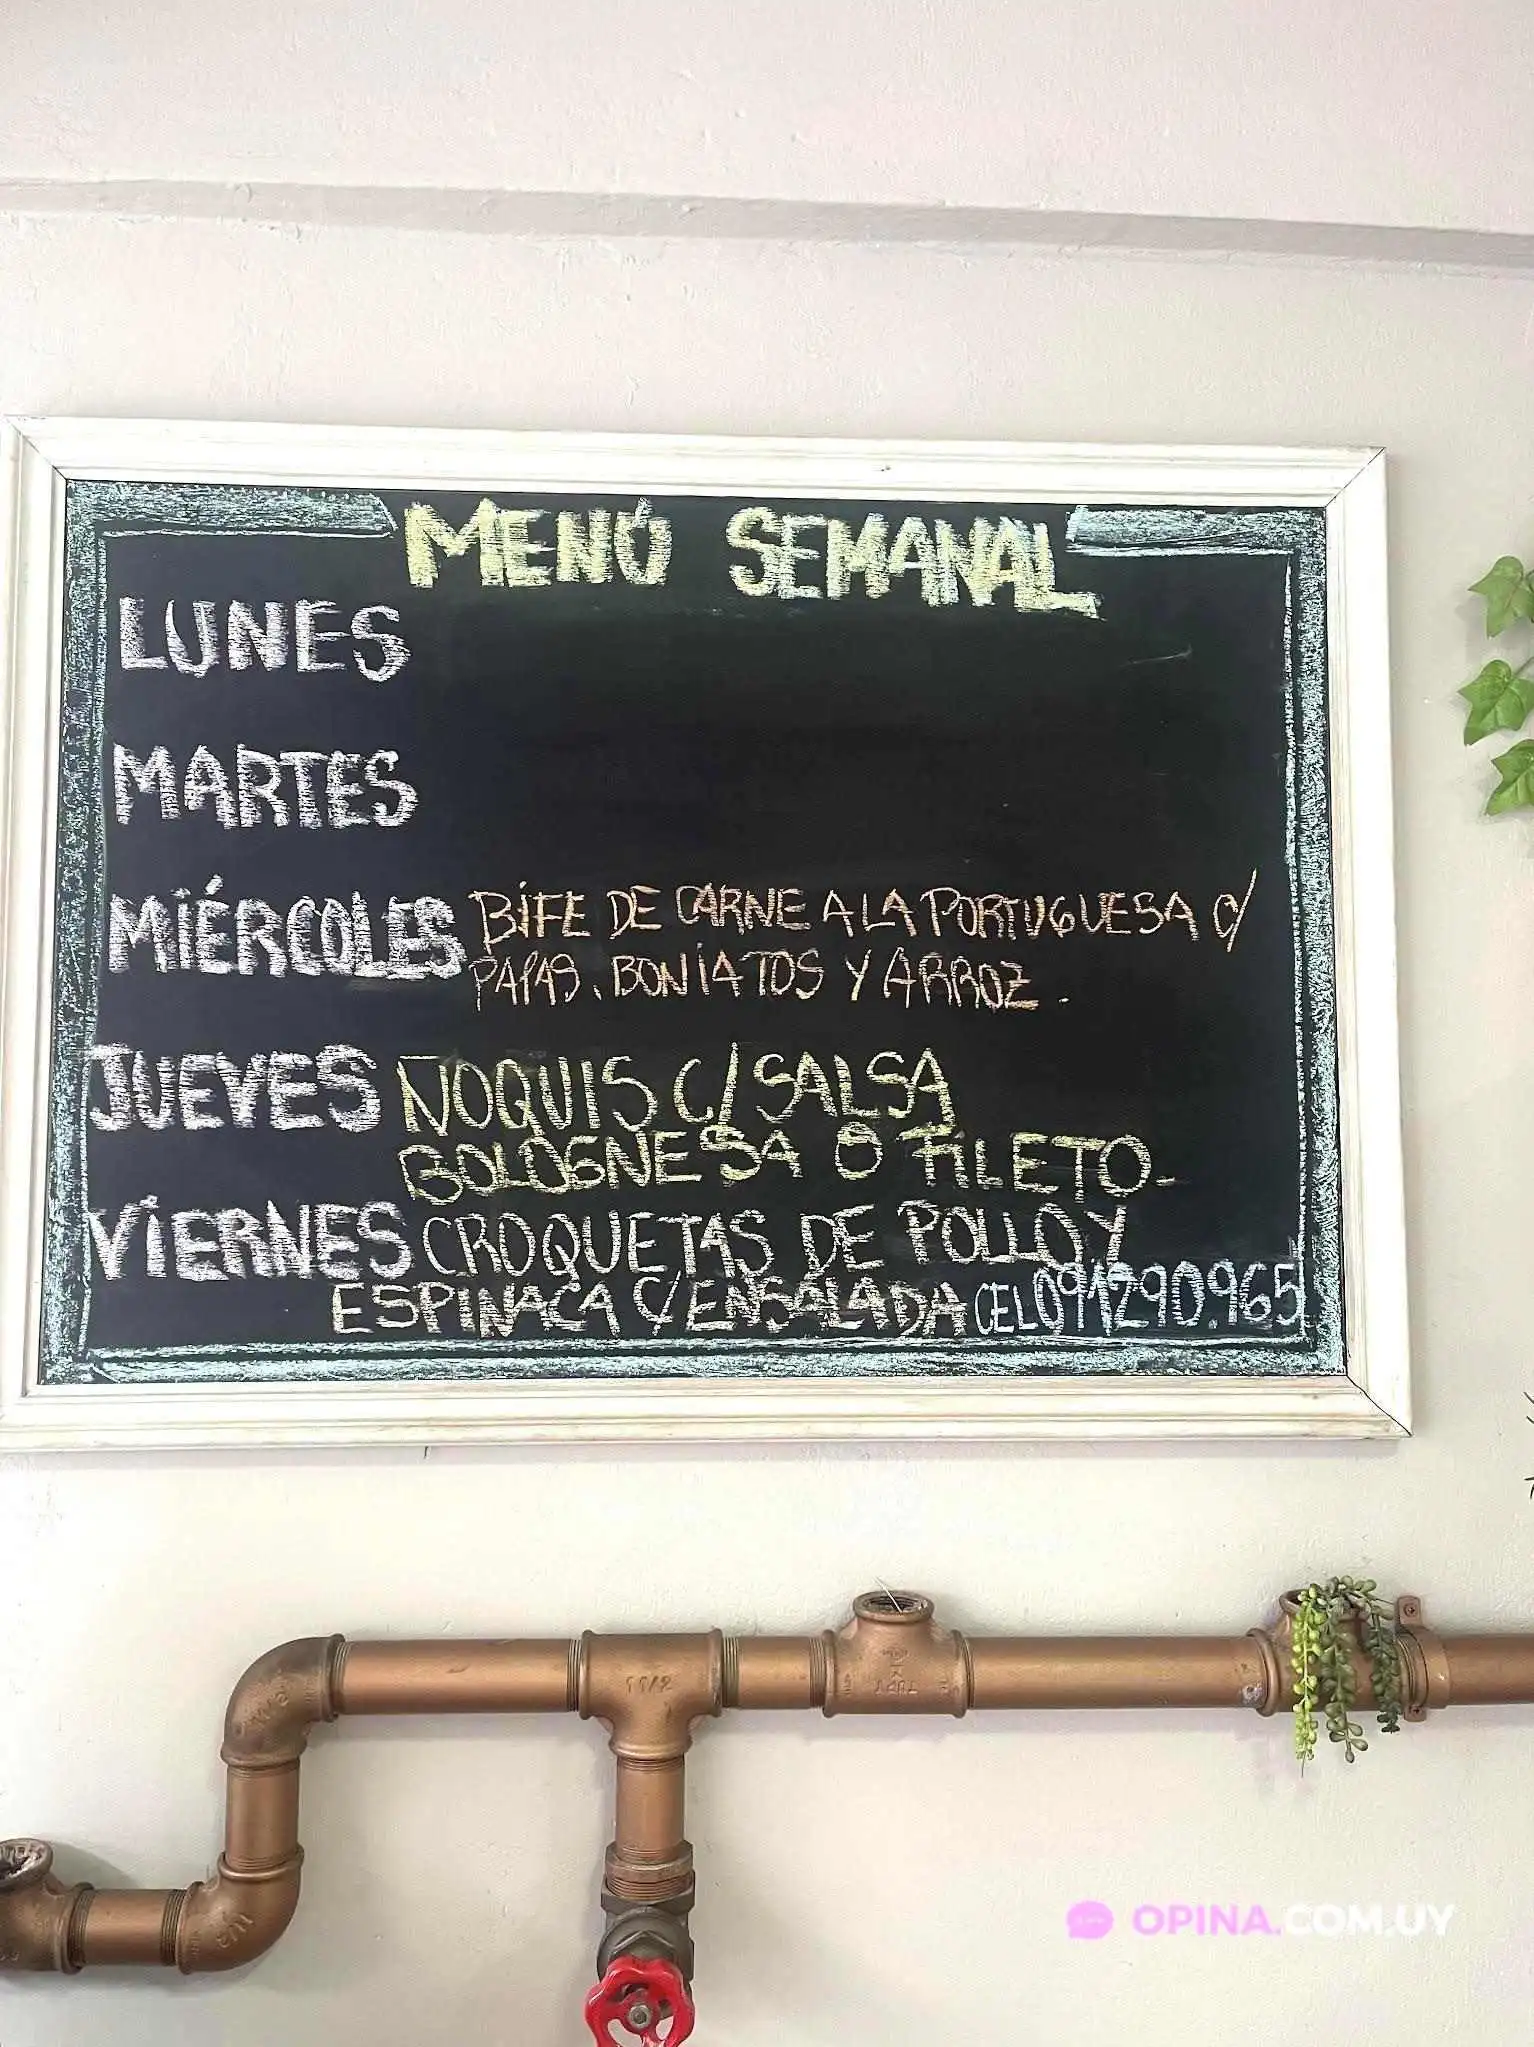 MENÚ SEMANAL
LUNES
MARTES
MIÉRCOLES BIFE DE CARNE A LA PORTUGUESA C/
PAPAS, BONIATOS Y ARROZ.
JUEVES ÑOQUIS C/SALSA
BOLOGNESA O FILETO.
VIERNES CROQUETAS DE POLLO Y
ESPINACA C/ENSALADA CEL091290.965
11/2
TUPY
OPINA.COM.UY